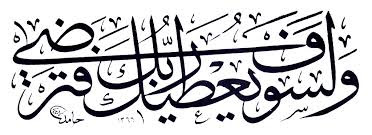 ولسوف يعطيك ربك فترضى
حامد ١٣٦٦